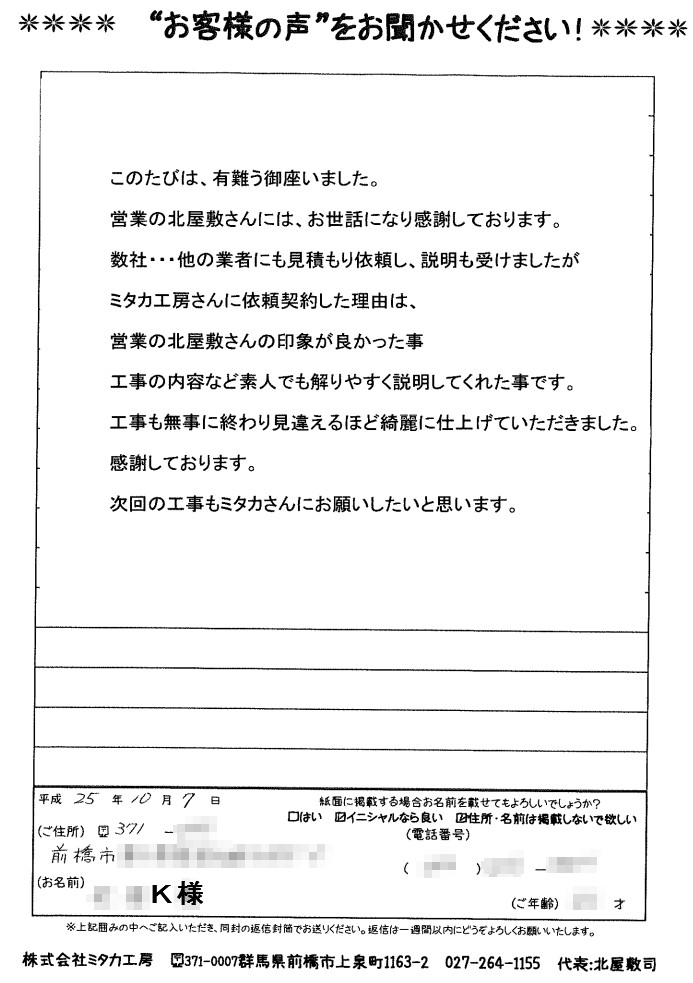 ＊＊＊＊ “お客様の声”をお聞かせください！＊＊＊＊
このたびは、有難う御座いました。
営業の北屋敷さんには、お世話になり感謝しております。
数社・・・他の業者にも見積もり依頼し、説明も受けましたが
ミタカ工房さんに依頼契約した理由は、
営業の北屋敷さんの印象が良かった事
工事の内容など素人でも解りやすく説明してくれた事です。
工事も無事に終わり見違えるほど綺麗に仕上げていただきました。
感謝しております。
次回の工事もミタカさんにお願いしたいと思います。
平成 25 年 10 月 7 日
紙面に掲載する場合お名前を載せてもよろしいでしょうか？
□はい ☑イニシャルなら良い ☑住所・名前は掲載しないで欲しい
(ご住所) 〒371 －
(電話番号)
前橋市
( ) －
(お名前) K様
(ご年齢) 才
※上記囲みの中へご記入いただき、同封の返信封筒でお送りください。返信は一週間以内にどうぞよろしくお願いいたします。
株式会社ミタカ工房 〒371-0007群馬県前橋市上泉町1163-2 027-264-1155 代表:北屋敷司